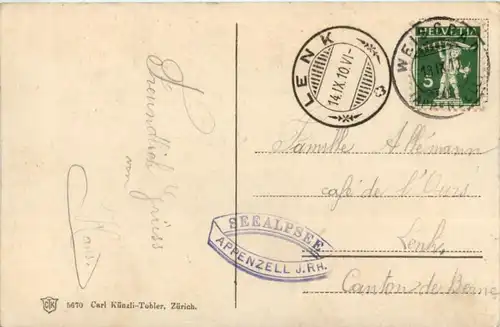 Freundlich Gruss
von
LENK
14.IX.10.VI-
HELVETIA
5
Famille Allemann
café de l'Ours
Lenk
Canton de Berne
SEEALPSEE
APPENZELL J.RH.
5670 Carl Künzli-Tobler, Zürich.